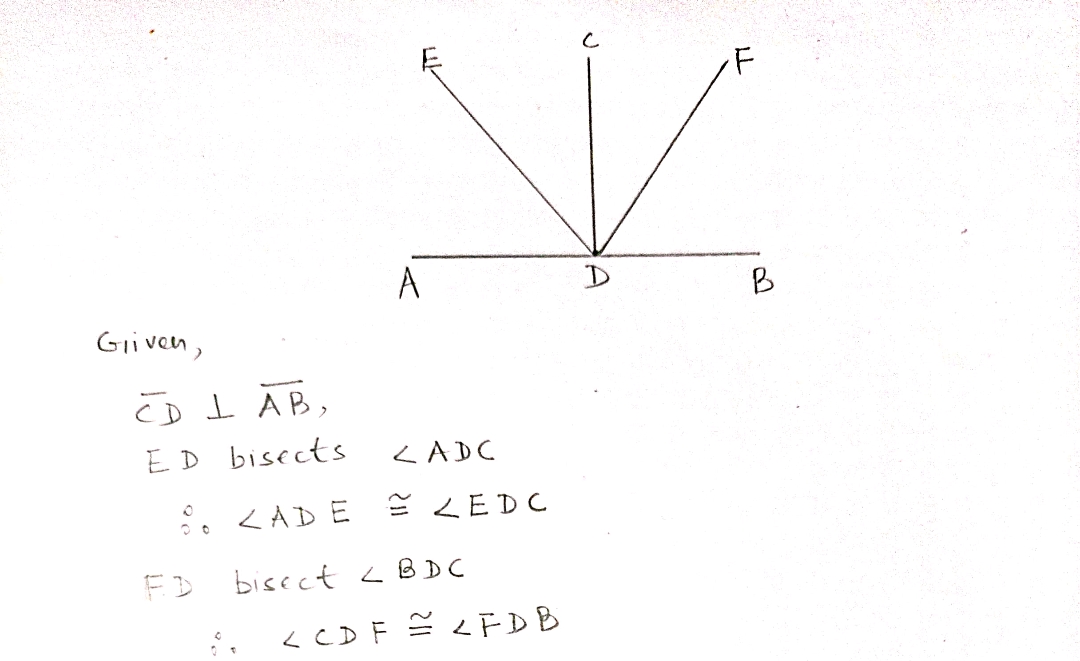 E C F
A D B
Given,
C̅D̅ ⊥ A̅B̅,
ED bisects ∠ADC
∴ ∠ADE ≅ ∠EDC
FD bisect ∠BDC
∴ ∠CDF ≅ ∠FDB